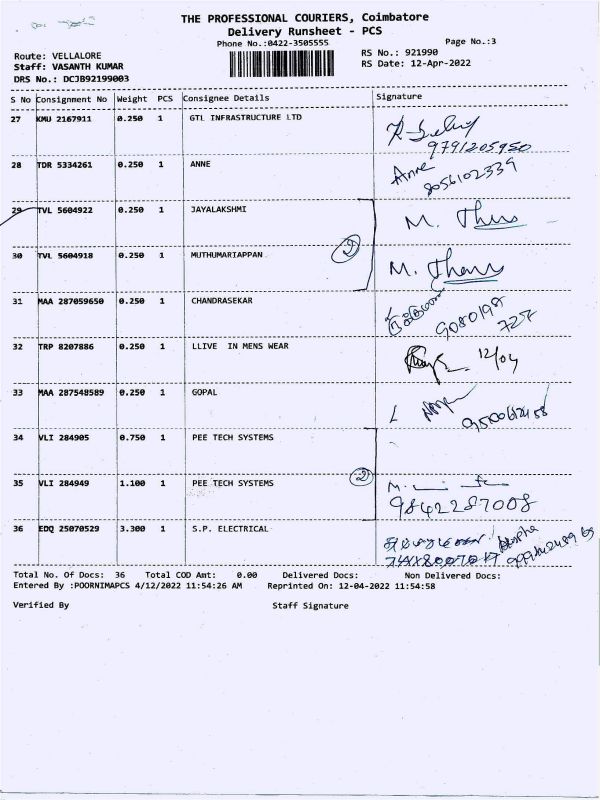 THE PROFESSIONAL COURIERS, Coimbatore
Delivery Runsheet - PCS
Phone No.:0422-3505555 Page No.:3
Route: VELLALORE RS No.: 921990
Staff: VASANTH KUMAR RS Date: 12-Apr-2022
DRS No.: DCJB92199003
S No Consignment No Weight PCS Consignee Details Signature
27 KMU 2167911 0.250 1 GTL INFRASTRUCTURE LTD
9791205950
28 TDR 5334261 0.250 1 ANNE Anne
8056102339
29 TVL 5604922 0.250 1 JAYALAKSHMI M.
30 TVL 5604918 0.250 1 MUTHUMARIAPPAN 2 M.
31 MAA 287059650 0.250 1 CHANDRASEKAR
9080198
725
32 TRP 8207886 0.250 1 LLIVE IN MENS WEAR 12/04
33 MAA 287548589 0.250 1 GOPAL
34 VLI 284905 0.750 1 PEE TECH SYSTEMS
35 VLI 284949 1.100 1 PEE TECH SYSTEMS 2
9842287008
36 EDQ 25070529 3.300 1 S.P. ELECTRICAL
Total No. Of Docs: 36 Total COD Amt: 0.00 Delivered Docs: Non Delivered Docs:
Entered By :POORNIMAPCS 4/12/2022 11:54:26 AM Reprinted On: 12-04-2022 11:54:58
Verified By Staff Signature